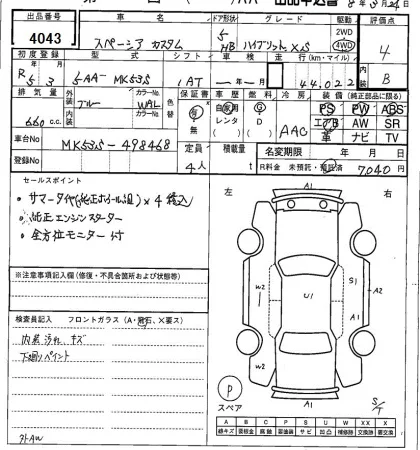 出品番号 車名 ドア形状 グレード 駆動 評価点
4043 スペーシア カスタム 5 HB ハイブリットXS 2WD 4WD 4
初度登録 型式 シフト 車検 走行 (km・マイル) 内装 B
R5 3 5AA-MK53S IAT 年 月 44,022
排気量 外装 カラーNo. 色替 車歴 燃料 冷房 装備 (純正部品に限る)
660 c.c. ブルー WAL 有 無 自家用 レンタ G D AAC PS PW ABS
内装 カラーNo. エアB AW SR
革 ナビ TV
車台No MK53S-498468
定員 積載量 名変期限 年 月 日
登録No 4人 t R料金 未預託・預託済 7,040円
セールスポイント
・サマータイヤ(純正ホイール組)×4積込
・純正エンジンスターター
・全方位モニター付
※注意事項記入欄 (修復・不具合箇所および状態)
検査員記入 フロントガラス (A・飛石、X要ス)
内装汚れ、キズ
下廻りペイント
外AW
左 右
A1
W2 S1 A2
U1
W2 A1
A1
P
スペア
S/T
A B C P S U W X XX